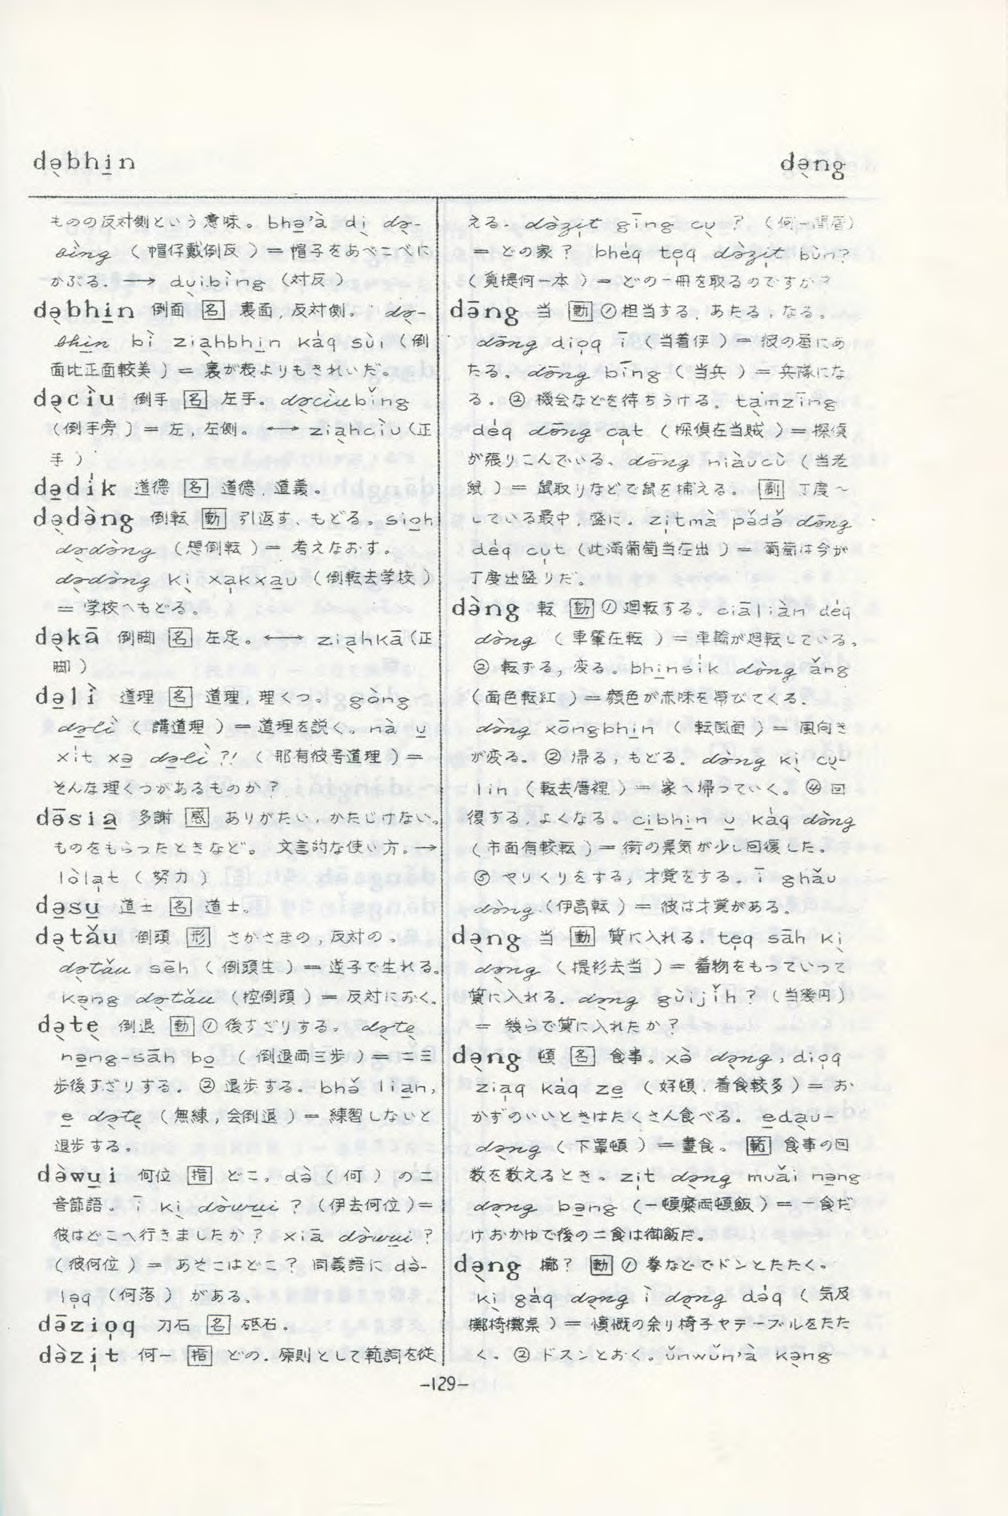 də̖bhi̱n
də̖ng
ものの反対側という意味。bha̱'à di̖ də̖-
bìng (帽仔戴倒反)=帽子をあべこべに
かぶる。←→ dùibìng (対反)
də̖bhi̱n 倒面 [名] 裏面,反対側。də̖-
bhi̱n bì zia̖hbhi̱n káq sùi (倒
面比正面較美)=裏が表よりもきれいだ。
də̖cìu 倒手 [名] 左手。də̖cìubíng
(倒手旁)=左,左側。←→ zia̖hcìu (正
手)
də̱dı̍k 道徳 [名] 道徳,道義。
də̖də̀ng 倒転 [動] 引返す,もどる。sio̱h
də̖də̀ng (想倒転)=考えなおす。
də̖də̀ng ki̖ xa̍kxa̖u (倒転去学校)
=学校へもどる。
də̖kā 倒脚 [名] 左足。←→ zia̖hkā (正
脚)
də̱lì 道理 [名] 道理,理くつ。gòng
də̱lì (講道理)=道理を説く。nà u̱
xı̍t xə̱ də̱lì ?! (那有彼号道理)=
そんな理くつがあるものか?
dəsia̱ 多謝 [感] ありがたい,かたじけない。
ものをもらったときなど。文言的な使い方。→
lòla̍t (努力)
də̱su̱ 道士 [名] 道士。
də̖tǎu 倒頭 [形] さかさまの,反対の。
də̖tǎu sēh (倒頭生)=逆子で生れる。
ka̖ng də̖tǎu (控倒頭)=反対におく。
də̖te̖ 倒退 [動] ① 後ずさりする。də̖te̖
nə̱ng-sāh bo̱ (倒退両三歩)=二三
歩後ずさりする。② 退歩する。bhə̌ lia̱n,
e̱ də̖te̖ (無練,会倒退)=練習しないと
退歩する。
də̀wu̱i 何位 [指] どこ,də̀(何)の二
音節語。ī ki̖ də̀wu̱i ? (伊去何位)=
彼はどこへ行きましたか? xiā də̀wu̱i ?
(彼何位)=あそこはどこ? 同義語に də̀-
la̍q (何落)がある。
də̄zio̍q 刀石 [名] 砥石。
də̀zı̍t 何一 [指] どの。原則として範詞を従
える。də̀zı̍t gīng cu̖ ? (何一間厝)
=どの家? bhéq te̍q də̀zı̍t bùn?
(覓提何一本)=どの一冊を取るのですか?
də̄ng 当 [動] ① 担当する,あたる,なる。
də̄ng dio̍q ī (当着伊)=彼の番にあ
たる。də̄ng bīng (当兵)=兵隊にな
る。② 機会などを待ちうける。ta̖mzīng
déq də̄ng ca̍t (探偵在当賊)=探偵
が張りこんでいる、də̄ng niàucù (当老
鼠)=鼠取りなどで鼠を捕える。[副] 丁度~
している最中,盛に。zı̍tmā pǒdə̌ də̄ng
déq cu̍t (此満葡萄当在出)=葡萄は今が
丁度出盛りだ。
də̀ng 転 [動] ① 廻転する。ciāliàn déq
də̀ng (車輦在転)=車輪が廻転している。
② 転ずる,変る。bhi̱nsı́k də̀ng ǎng
(面色転紅)=顔色が赤味を帯びてくる。
də̀ng xōngbhi̱n (転風面)=風向き
が変る。② 帰る,もどる。də̀ng ki̖ cu̖-
lin (転去厝裡)=家へ帰っていく。④ 回
復する,よくなる。cìbhi̱n u̱ káq də̀ng
(市面有較転)=街の景気が少し回復した。
⑤ やりくりをする,才覚をする。ī ghǎu
də̀ng (伊高転)=彼は才覚がある。
də̖ng 当 [動] 質に入れる。te̍q sāh ki̖
də̖ng (提衫去当)=着物をもっていって
質に入れる。də̖ng gùijǐh ? (当幾円)
=幾らで質に入れたか?
də̖ng 頓 [名] 食事。xə̀ də̖ng, dio̍q
zia̍q káq ze̱ (好頓,着食較多)=お
かずのいいときはたくさん食べる。e̱dàu-
də̖ng (下罩頓)=昼食。[範] 食事の回
数を数えるとき。zı̍t də̖ng muǎi nə̱ng
də̖ng bə̱ng (一頓糜両頓飯)=一食だ
けおかゆで後の二食は御飯だ。
də̖ng 擲? [動] ① 拳などでドンとたたく。
ki̖ gáq də̖ng ì də̖ng dóq (気及
擲椅擲桌)=憤慨の余り椅子やテーブルをたた
く。② ドスンとおく。ǔnwǔn'à ka̖ng
-129-